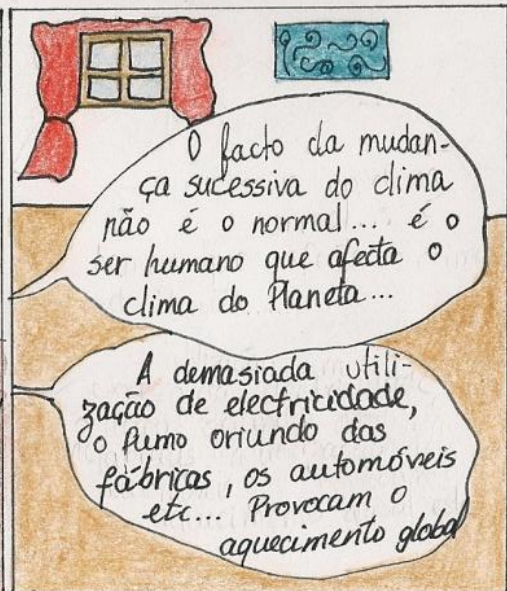 O facto da mudan-
ça sucessiva do clima
não é o normal... é o
ser humano que afecta o
clima do Planeta...
A demasiada utili-
zação de electricidade,
o fumo oriundo das
fábricas, os automóveis
etc... Provocam o
aquecimento global